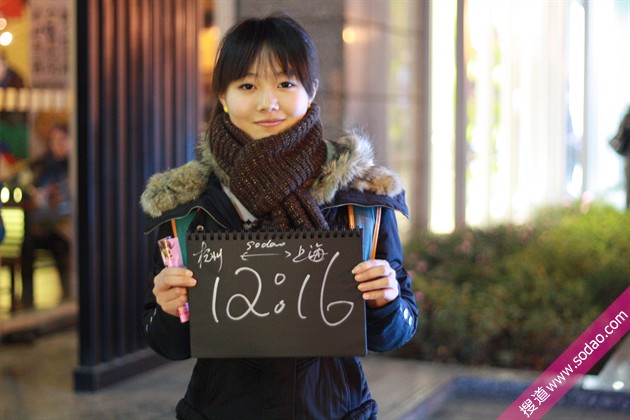 杭州 sodao ←→ 上海
12:16
搜道www.sodao.com